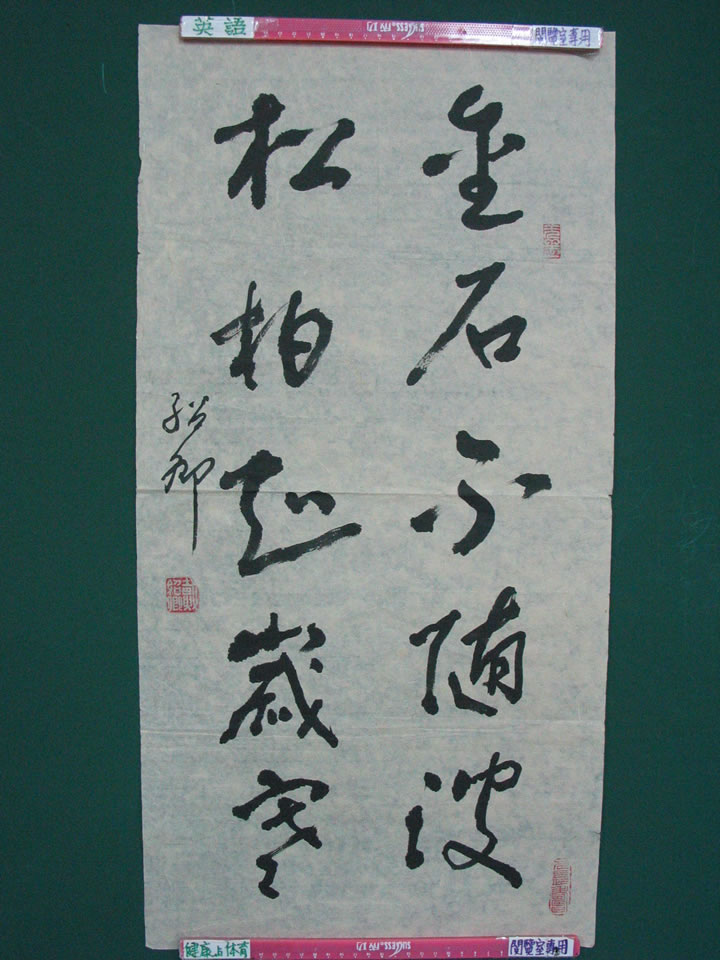 英語
SUCCESS
閱覽室專用
金石不隨波
松柏知歲寒
健康与体育
SUCCESS
閱覽室專用